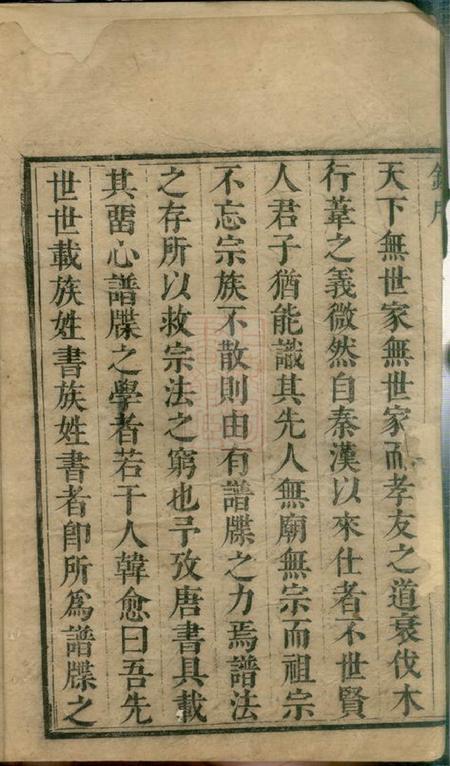 天下無世家無世家而孝友之道衰伐木
行葦之義微然自秦漢以來仕者不世賢
人君子猶能識其先人無廟無宗而祖宗
不忘宗族不散則由有譜牒之力焉譜法
之存所以救宗法之窮也予攷唐書具載
其畱心譜牒之學者若干人韓愈曰吾先
世世載族姓書族姓書者卽所爲譜牒之